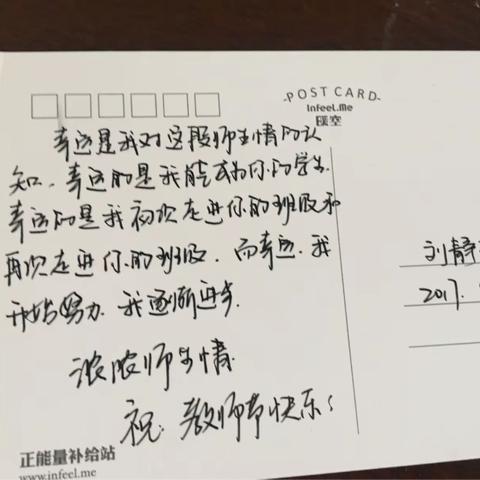 POST CARD
Infeel.Me
璞空
幸运是我对这段师生情的认
知.幸运的是我能成为你的学生.
幸运的是我初次走进你的班级和
再次走进你的班级.而幸运.我
开始努力.我逐渐进步.
浓浓师生情.
祝.教师节快乐!
刘静
2017.
正能量补给站
www.infeel.me